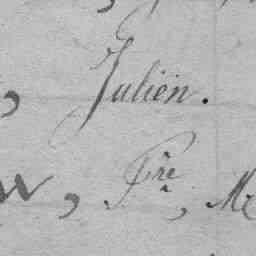 , Julien.
w, Pre, Me